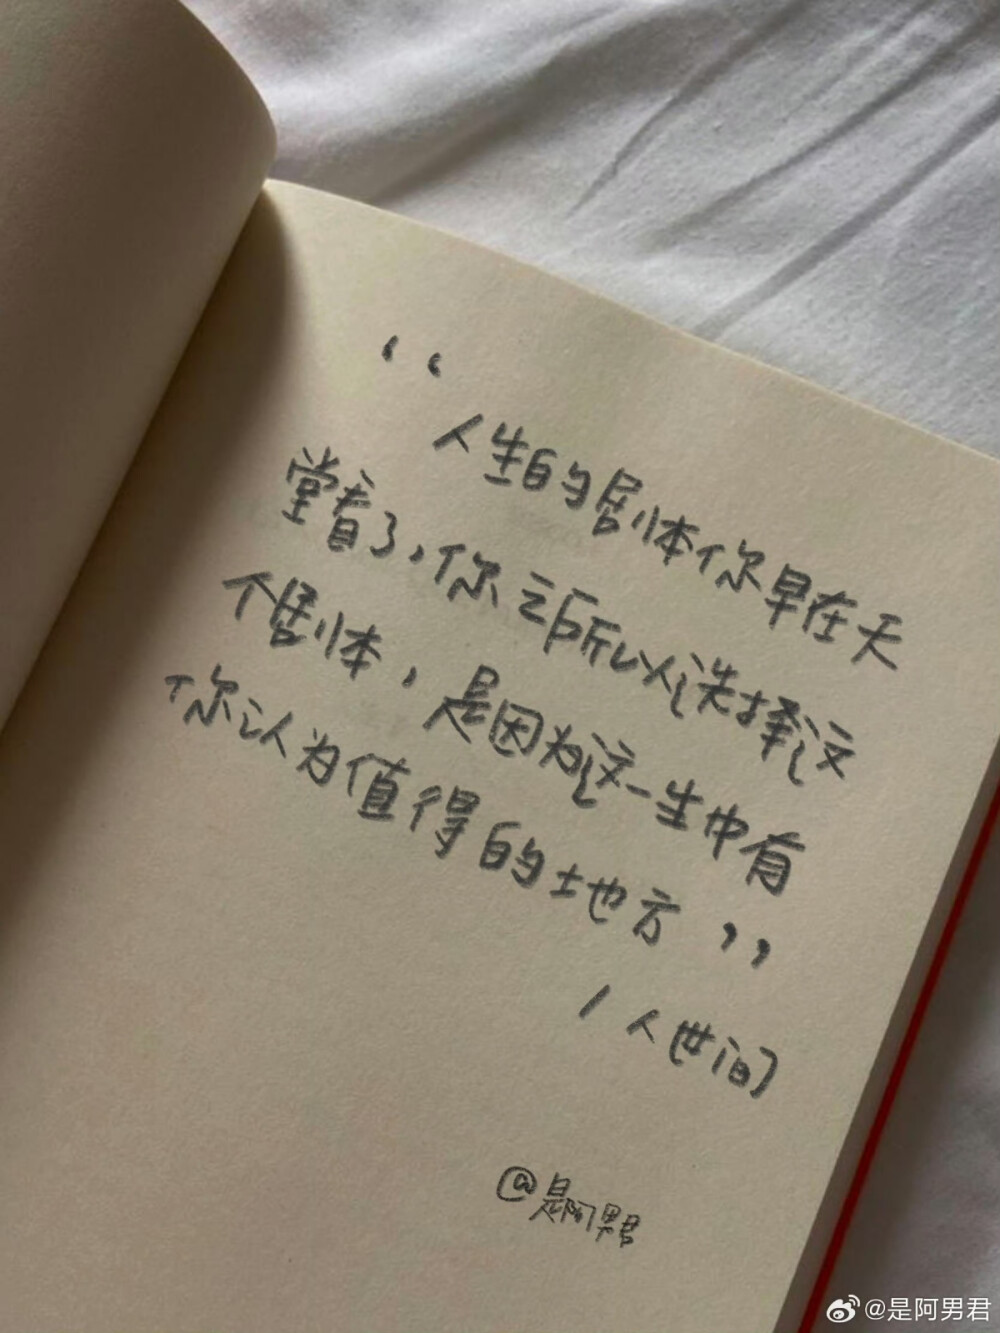 “
人生的剧本你早在天
堂看了,你之所以选择这
个剧本,是因为这一生中有
你认为值得的地方”
/人世间
@是阿男君
@是阿男君